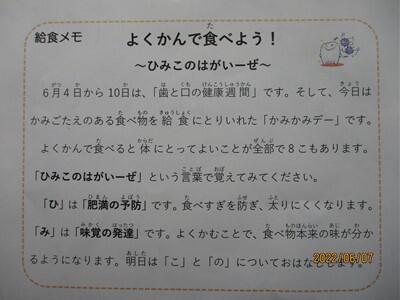 給食メモ
よくかんで食べよう！
～ひみこのはがいーぜ～
6月4日から10日は、「歯と口の健康週間」です。そして、今日は
かみごたえのある食べ物を給食にとりいれた「かみかみデー」です。
よくかんで食べると体にとってよいことが全部で8こもあります。
「ひみこのはがいーぜ」という言葉で覚えてみてください。
「ひ」は「肥満の予防」です。食べすぎを防ぎ、太りにくくなります。
「み」は「味覚の発達」です。よくかむことで、食べ物本来の味が分か
るようになります。明日は「こ」と「の」についておはなしします。
2022/06/07